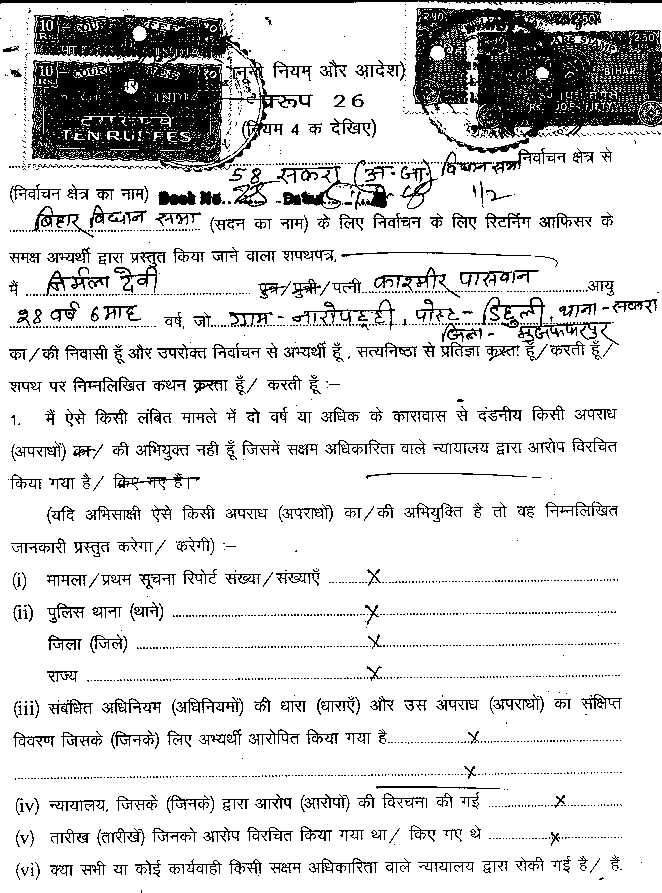 10
10
TEN RUPEES
250
BIHAR
नियम और आदेश)
प्ररूप 26
(नियम 4 क देखिए)
58 सकरा (अ.जा) विधान सभा निर्वाचन क्षेत्र से
(निर्वाचन क्षेत्र का नाम) Book No. 28 Dated 1/2
बिहार विधान सभा (सदन का नाम) के लिए निर्वाचन के लिए रिटर्निंग आफिसर के
समक्ष अभ्यर्थी द्वारा प्रस्तुत किया जाने वाला शपथपत्र,
मैं निर्मला देवी पुत्र/पुत्री/पत्नी काश्मीर पासवान आयु
28 वर्ष 6 माह वर्ष, जो ग्राम - नारोपट्टी, पोस्ट - डिहुली, थाना - सकरा
जिला - मुजफ्फरपुर
का/की निवासी हूँ और उपरोक्त निर्वाचन से अभ्यर्थी हूँ, सत्यनिष्ठा से प्रतिज्ञा करता हूँ/करती हूँ/
शपथ पर निम्नलिखित कथन करता हूँ/ करती हूँ :–
1. मैं ऐसे किसी लंबित मामले में दो वर्ष या अधिक के कारावास से दंडनीय किसी अपराध
(अपराधों) का/ की अभियुक्त नही हूँ जिसमें सक्षम अधिकारिता वाले न्यायालय द्वारा आरोप विरचित
किया गया है/ किए गए हैं।
(यदि अभिसाक्षी ऐसे किसी अपराध (अपराधों) का/की अभियुक्ति है तो वह निम्नलिखित
जानकारी प्रस्तुत करेगा/ करेगी) :–
(i) मामला/प्रथम सूचना रिपोर्ट संख्या/संख्याएँ X
(ii) पुलिस थाना (थाने) X
जिला (जिले) X
राज्य X
(iii) संबंधित अधिनियम (अधिनियमों) की धारा (धाराएँ) और उस अपराध (अपराधों) का संक्षिप्त
विवरण जिसके (जिनके) लिए अभ्यर्थी आरोपित किया गया है X
X
(iv) न्यायालय, जिसके (जिनके) द्वारा आरोप (आरोपों) की विरचना की गई X
(v) तारीख (तारीखें) जिनको आरोप विरचित किया गया था/ किए गए थे X
(vi) क्या सभी या कोई कार्यवाही किसी सक्षम अधिकारिता वाले न्यायालय द्वारा रोकी गई है/ हैं.